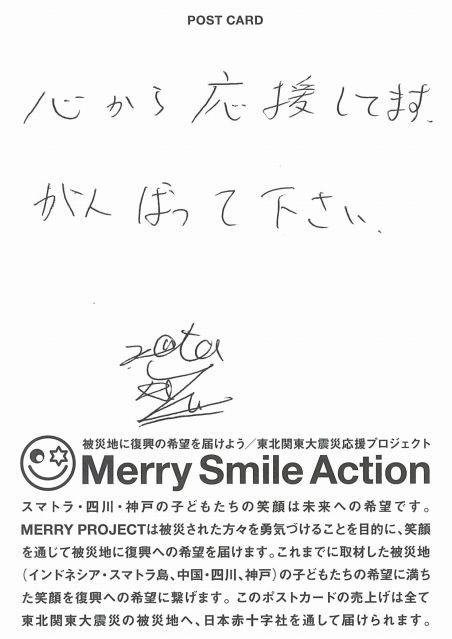 POST CARD
心から応援してます.
がんばって下さい.
被災地に復興の希望を届けよう/東北関東大震災応援プロジェクト
Merry Smile Action
スマトラ・四川・神戸の子どもたちの笑顔は未来への希望です。
MERRY PROJECTは被災された方々を勇気づけることを目的に、笑顔
を通じて被災地に復興への希望を届けます。これまでに取材した被災地
(インドネシア・スマトラ島、中国・四川、神戸)の子どもたちの希望に満ち
た笑顔を復興への希望に繋げます。このポストカードの売上げは全て
東北関東大震災の被災地へ、日本赤十字社を通して届けられます。